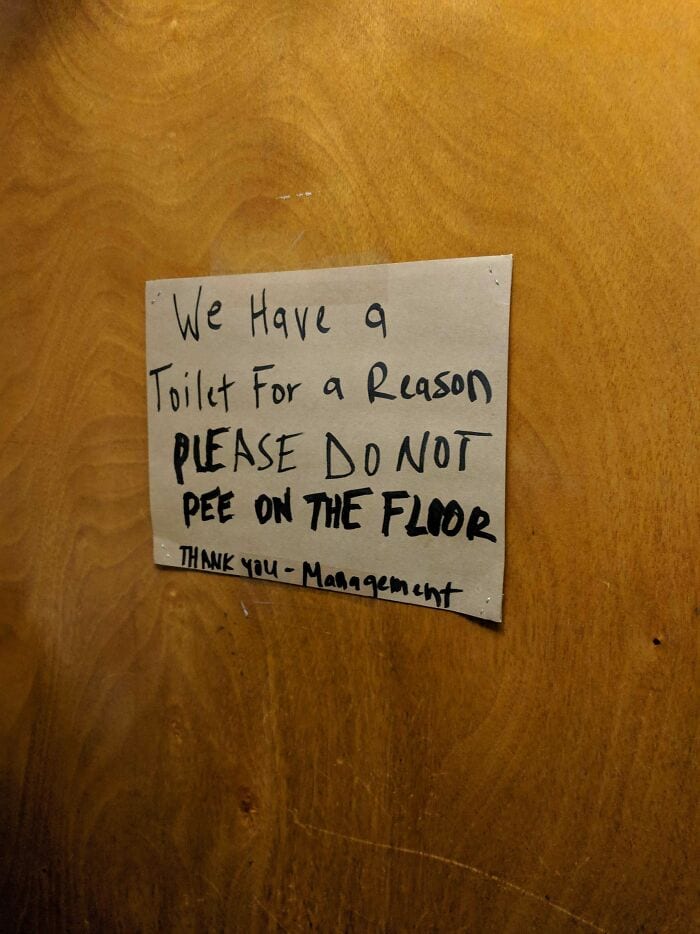 We Have a
Toilet For a Reason
PLEASE DO NOT
PEE ON THE FLOOR
THANK YOU - Management